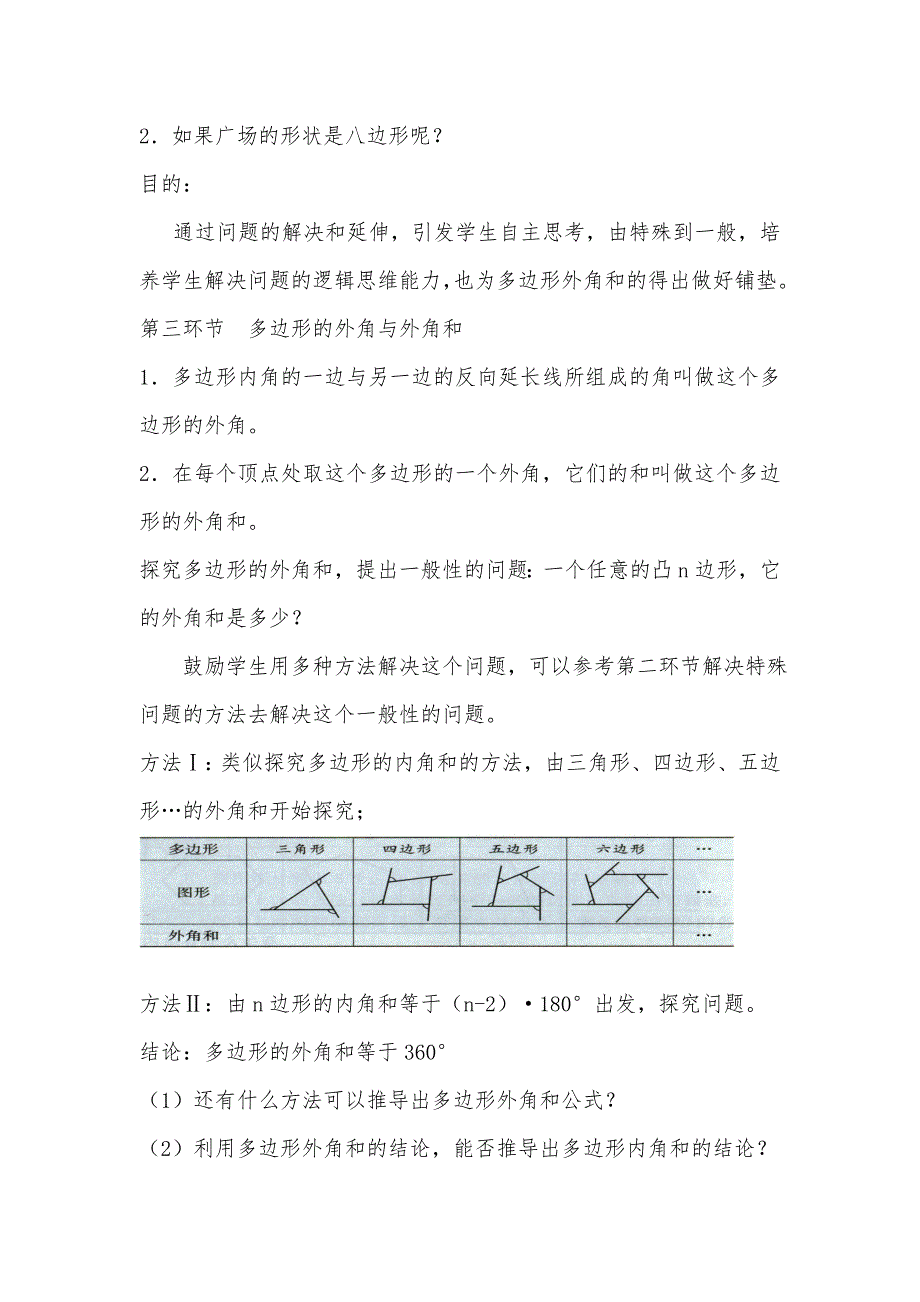 2. 如果广场的形状是八边形呢？
目的：
通过问题的解决和延伸，引发学生自主思考，由特殊到一般，培
养学生解决问题的逻辑思维能力，也为多边形外角和的得出做好铺垫。
第三环节　多边形的外角与外角和
1. 多边形内角的一边与另一边的反向延长线所组成的角叫做这个多
边形的外角。
2. 在每个顶点处取这个多边形的一个外角，它们的和叫做这个多边
形的外角和。
探究多边形的外角和，提出一般性的问题：一个任意的凸n边形，它
的外角和是多少？
鼓励学生用多种方法解决这个问题，可以参考第二环节解决特殊
问题的方法去解决这个一般性的问题。
方法Ⅰ：类似探究多边形的内角和的方法，由三角形、四边形、五边
形…的外角和开始探究；
多边形 三角形 四边形 五边形 六边形 …
图形 …
外角和 …
方法Ⅱ：由n边形的内角和等于（n-2）·180°出发，探究问题。
结论：多边形的外角和等于360°
（1）还有什么方法可以推导出多边形外角和公式？
（2）利用多边形外角和的结论，能否推导出多边形内角和的结论？